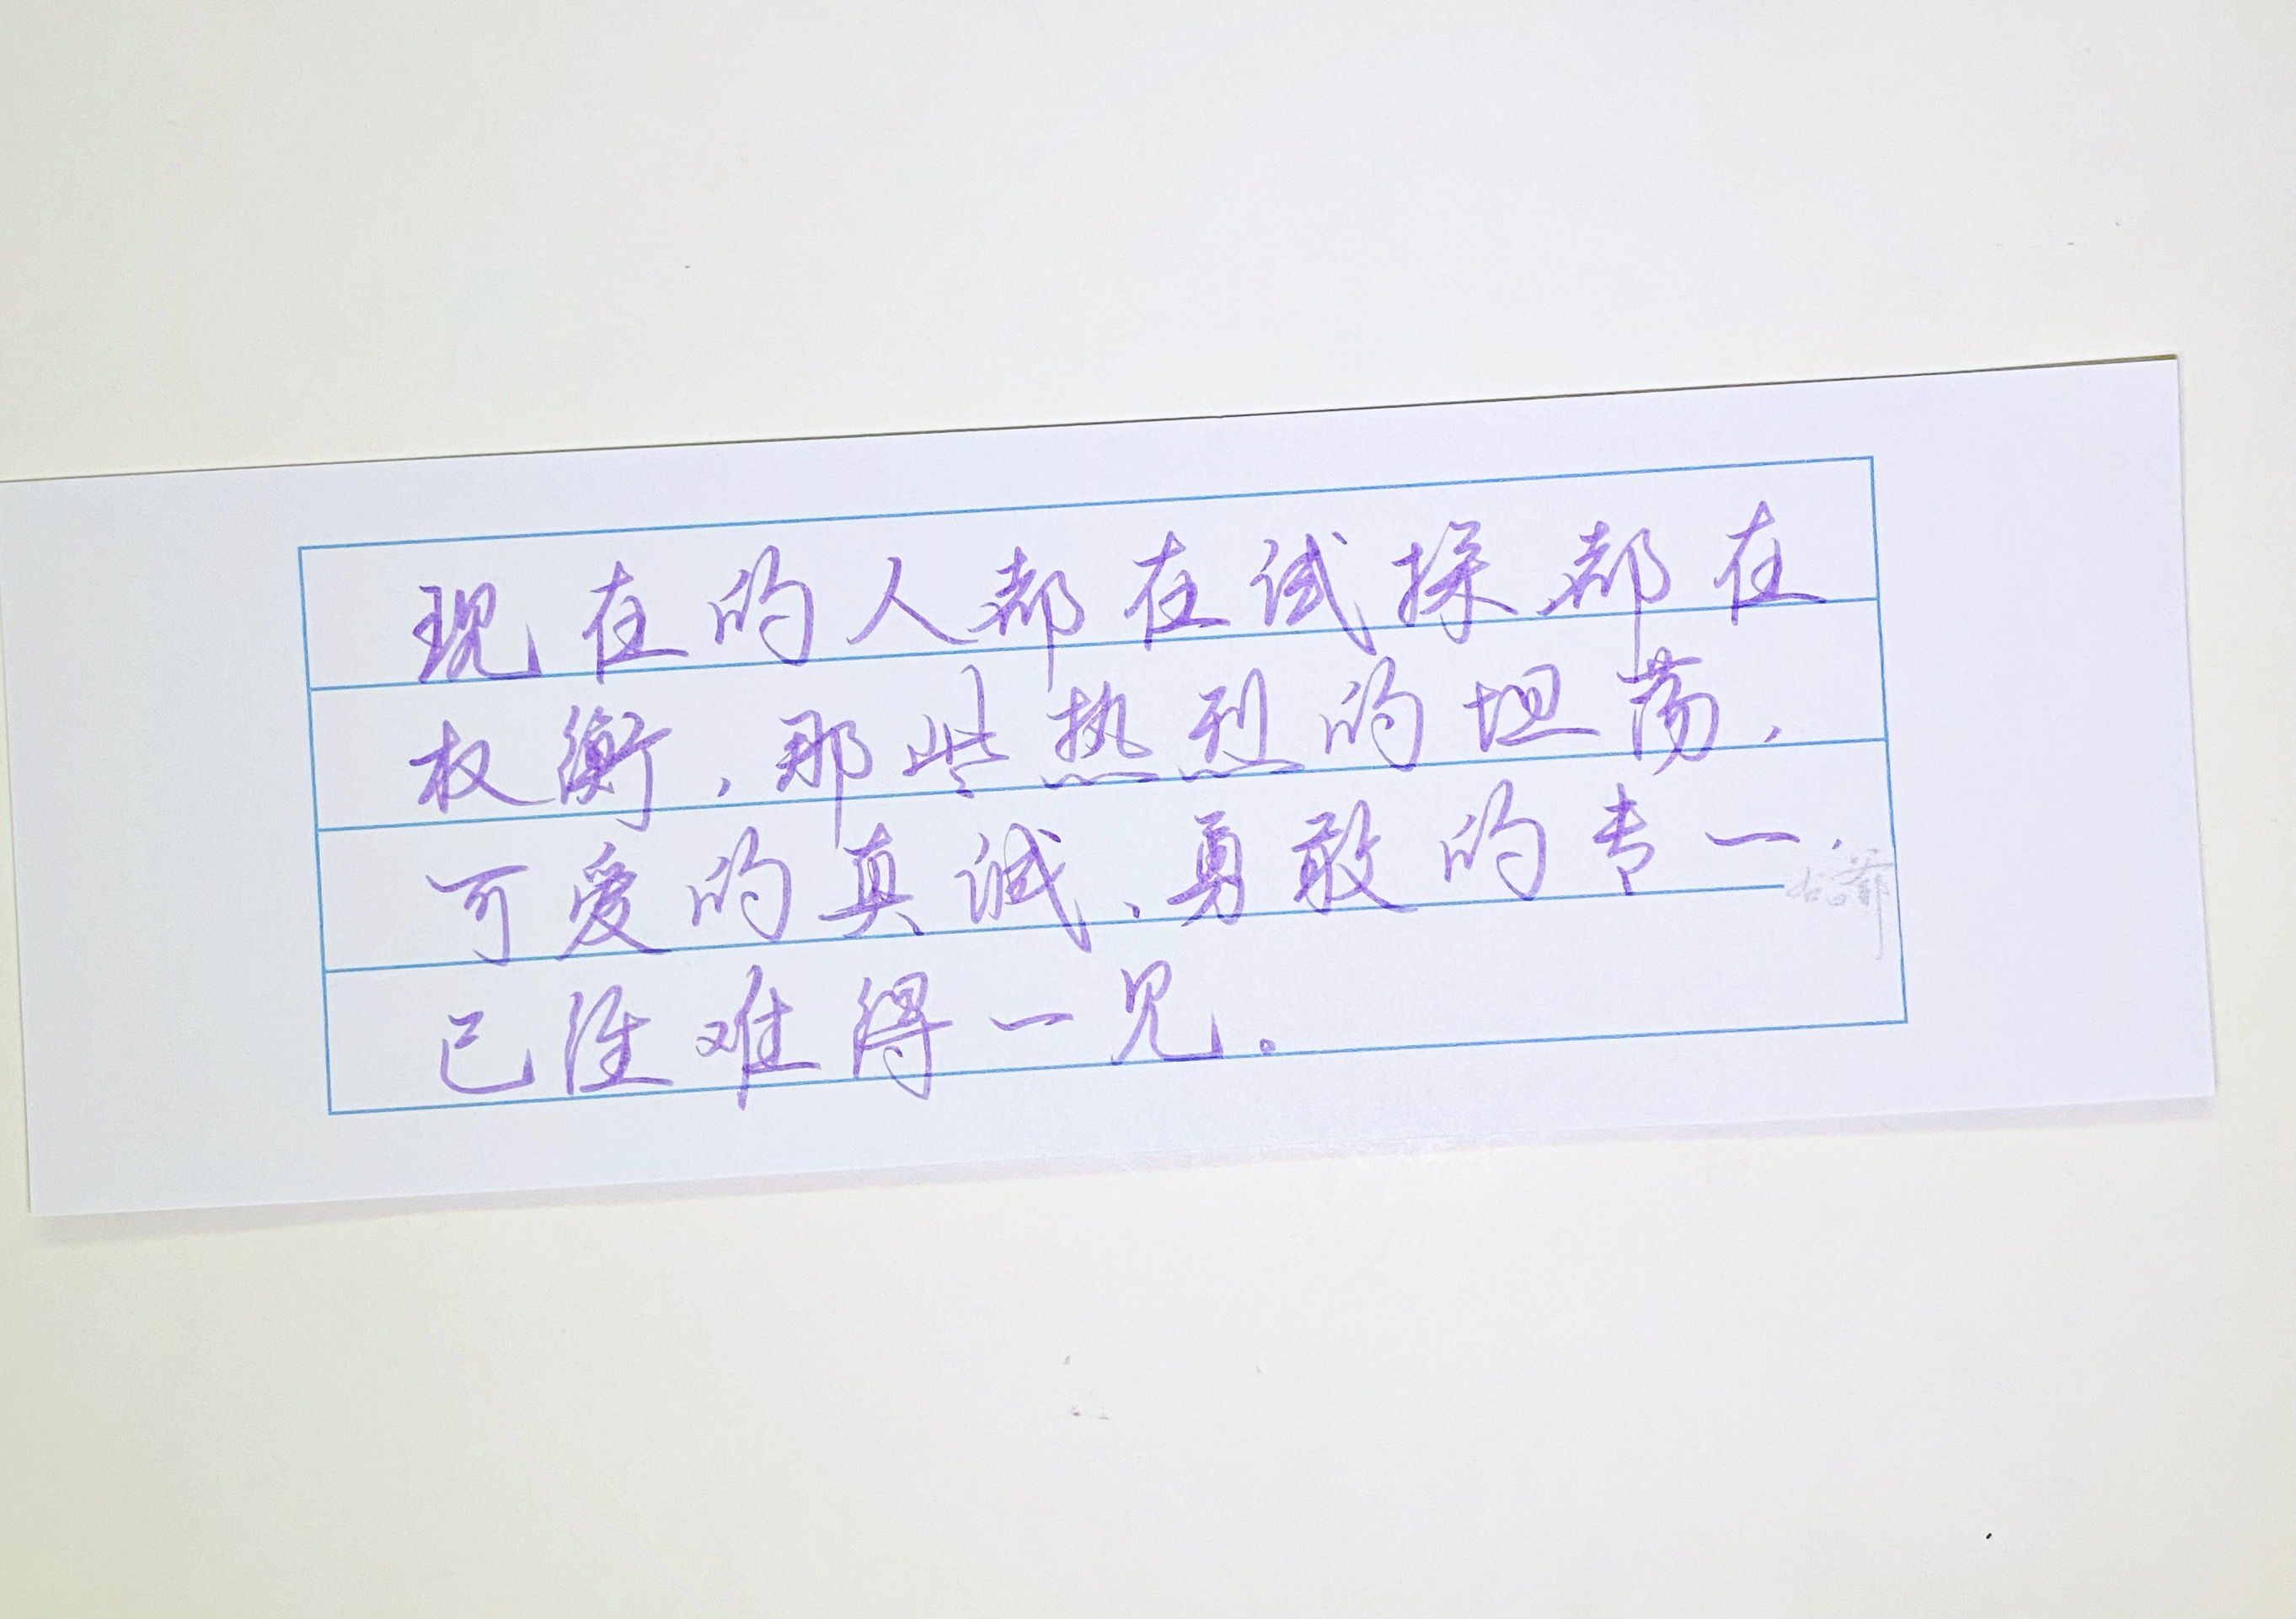 现在的人都在试探都在
权衡,那些热烈的坦荡,
可爱的真诚、勇敢的专一.
已经难得一见。